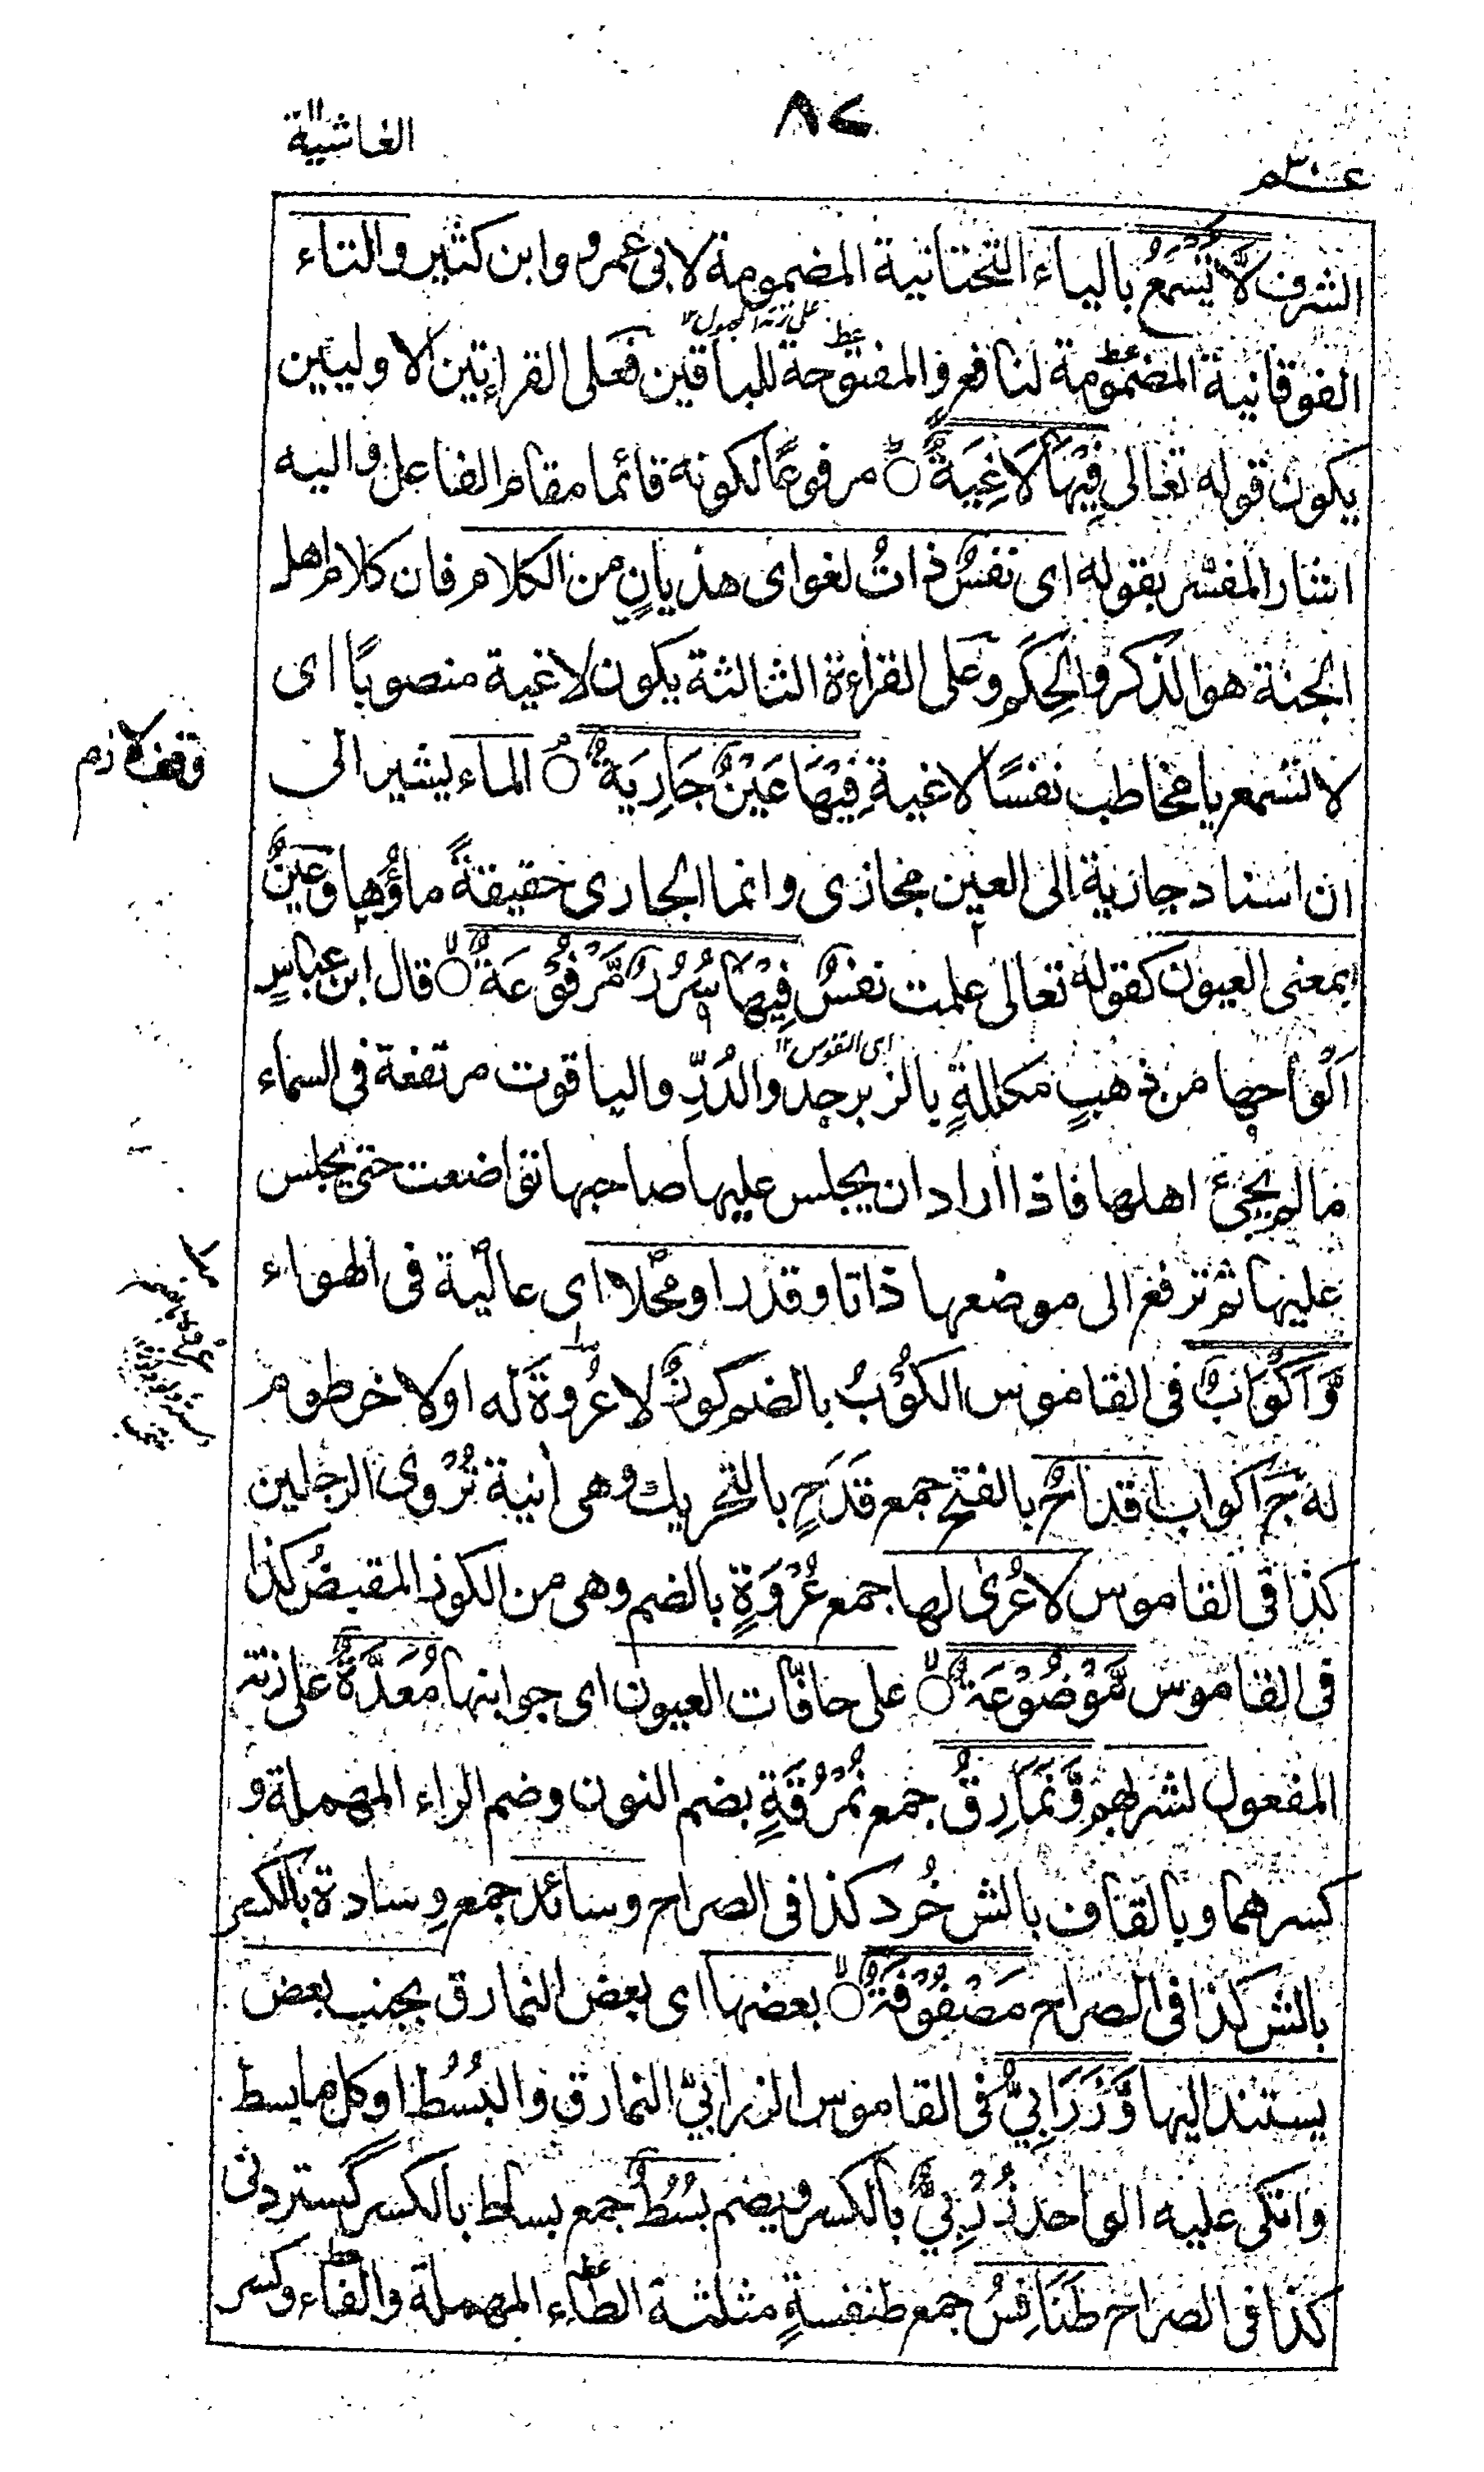 عم ٣٠
٨٧
الغاشية
الشرف لَا يُسْمَعُ بالياء التحتانية المضمومة لابى عمرو وابن كثير والتاء
على زنة المجهول ١٢
الفوقانية المضمومة لنافع والمفتوحة للباقين فعلى القراءتين الاوليين
يكون قوله تعالى فِيْهَا لَاغِيَةٌ مرفوعًا لكونه قائما مقام الفاعل واليه
اشار المفسر بقوله اى نفسٌ ذاتُ لغو اى هذيانٍ من الكلام فان كلام اهل
الجنة هو الذكر والحِكَم وعلى القراءة الثالثة يكون لاغية منصوبًا اى
لا تسمع يا مخاطب نفسًا لاغية فِيْهَا عَيْنٌ جَارِيَةٌ الماء يشير الى
وقف لازم
ان اسناد جارية الى العين مجازى وانما الجارى حقيقةً ماؤها وعينٌ
بمعنى العيون كقوله تعالى علمت نفسٌ فِيْهَا سُرُرٌ مَّرْفُوْعَةٌ قال ابن عباسٍ
اى القوس ١٢
اَلْواحها من ذهبٍ مكللةٍ بالزبرجد والدُرِّ والياقوت مرتفعة فى السماء
مالم يجئ اهلها فاذا اراد ان يجلس عليها صاحبها تواضعت حتى يجلس
عليها ثم ترفع الى موضعها ذاتا وقدرا ومحلا اى عالية فى الهواء
وَّاَكْوَابٌ فى القاموس الكُوْبُ بالضم كوزٌ لا عُرْوَةَ له او لا خرطوم
له ج اكواب اقداحٌ بالفتح جمع قَدَحٍ بالتحريك وهى اٰنية تُرْوِى الرجلين
كذا فى القاموس لا عُرىٰ لها جمع عُرْوَةٍ بالضم وهى من الكوز المقبض كذا
فى القاموس مَّوْضُوْعَةٌ على حافّات العيون اى جوانبها مُعَدَّةٌ على زنة
المفعول لشربهم وَّنَمَارِقُ جمع نُمْرُقَةٍ بضم النون وضم الراء المهملة و
كسرهما وبالقاف بالش خُرد كذا فى الصراح وسائد جمع وِسادة بالكسر
بالش كذا فى الصراح مَصْفُوْفَةٌ بعضها اى بعض النمارق بجنب بعض
يستند اليها وَّزَرَابِيُّ فى القاموس الزرابيّ النمارق والبُسُط او كل ما بسط
واتكى عليه الواحد زُرْبِيٌّ بالكسر ويضم بُسُطٌ جمع بساط بالكسر گستردنى
كذا فى الصراح طَنَافِسُ جمع طنفسةٍ مثلثة الطاء المهملة والفاء وكسر